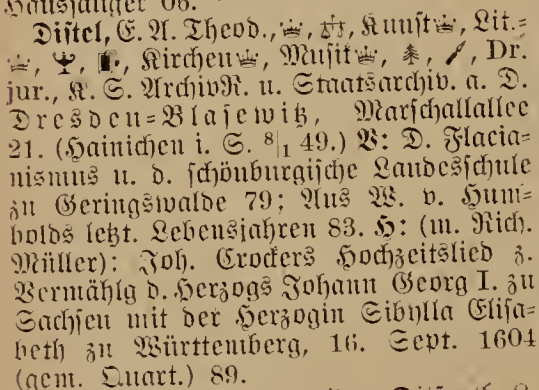 Hausjanger 06.
Distel, E. A. Theod., Kunst, Lit.=
, Kirchen, Musik, Dr.
jur., K. S. ArchivR. u. Staatsarchiv. a. D.
Dresden=Blasewitz, Marschallallee
21. (Hainichen i. S. 8|1 49.) V: D. Flacia-
nismus u. d. schönburgische Landesschule
zu Geringswalde 79; Aus W. v. Hum-
bolds letzt. Lebensjahren 83. H: (m. Rich.
Müller): Joh. Crockers Hochzeitslied z.
Vermählg d. Herzogs Johann Georg I. zu
Sachsen mit der Herzogin Sibylla Elisa-
beth zu Württemberg, 16. Sept. 1604
(gem. Quart.) 89.